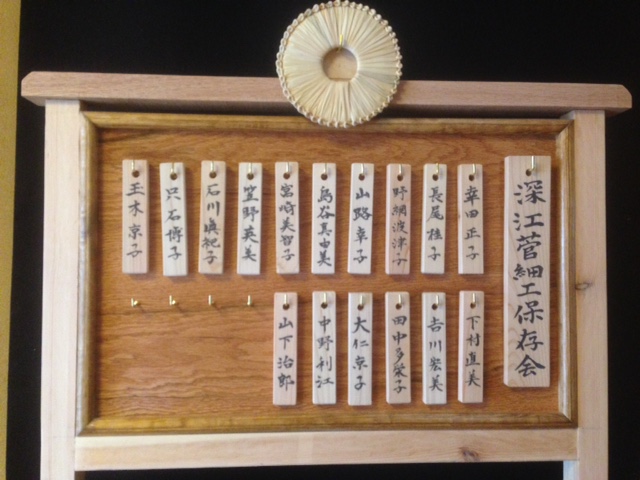 深江菅細工保存会
幸田正子
長尾桂子
野網波津子
山路幸子
鳥谷真由美
宮崎美智子
笠野英美
石川眞紀子
只石博子
玉木京子
下村直美
吉川宏美
田中多榮子
大仁京子
中野利江
山下治郎